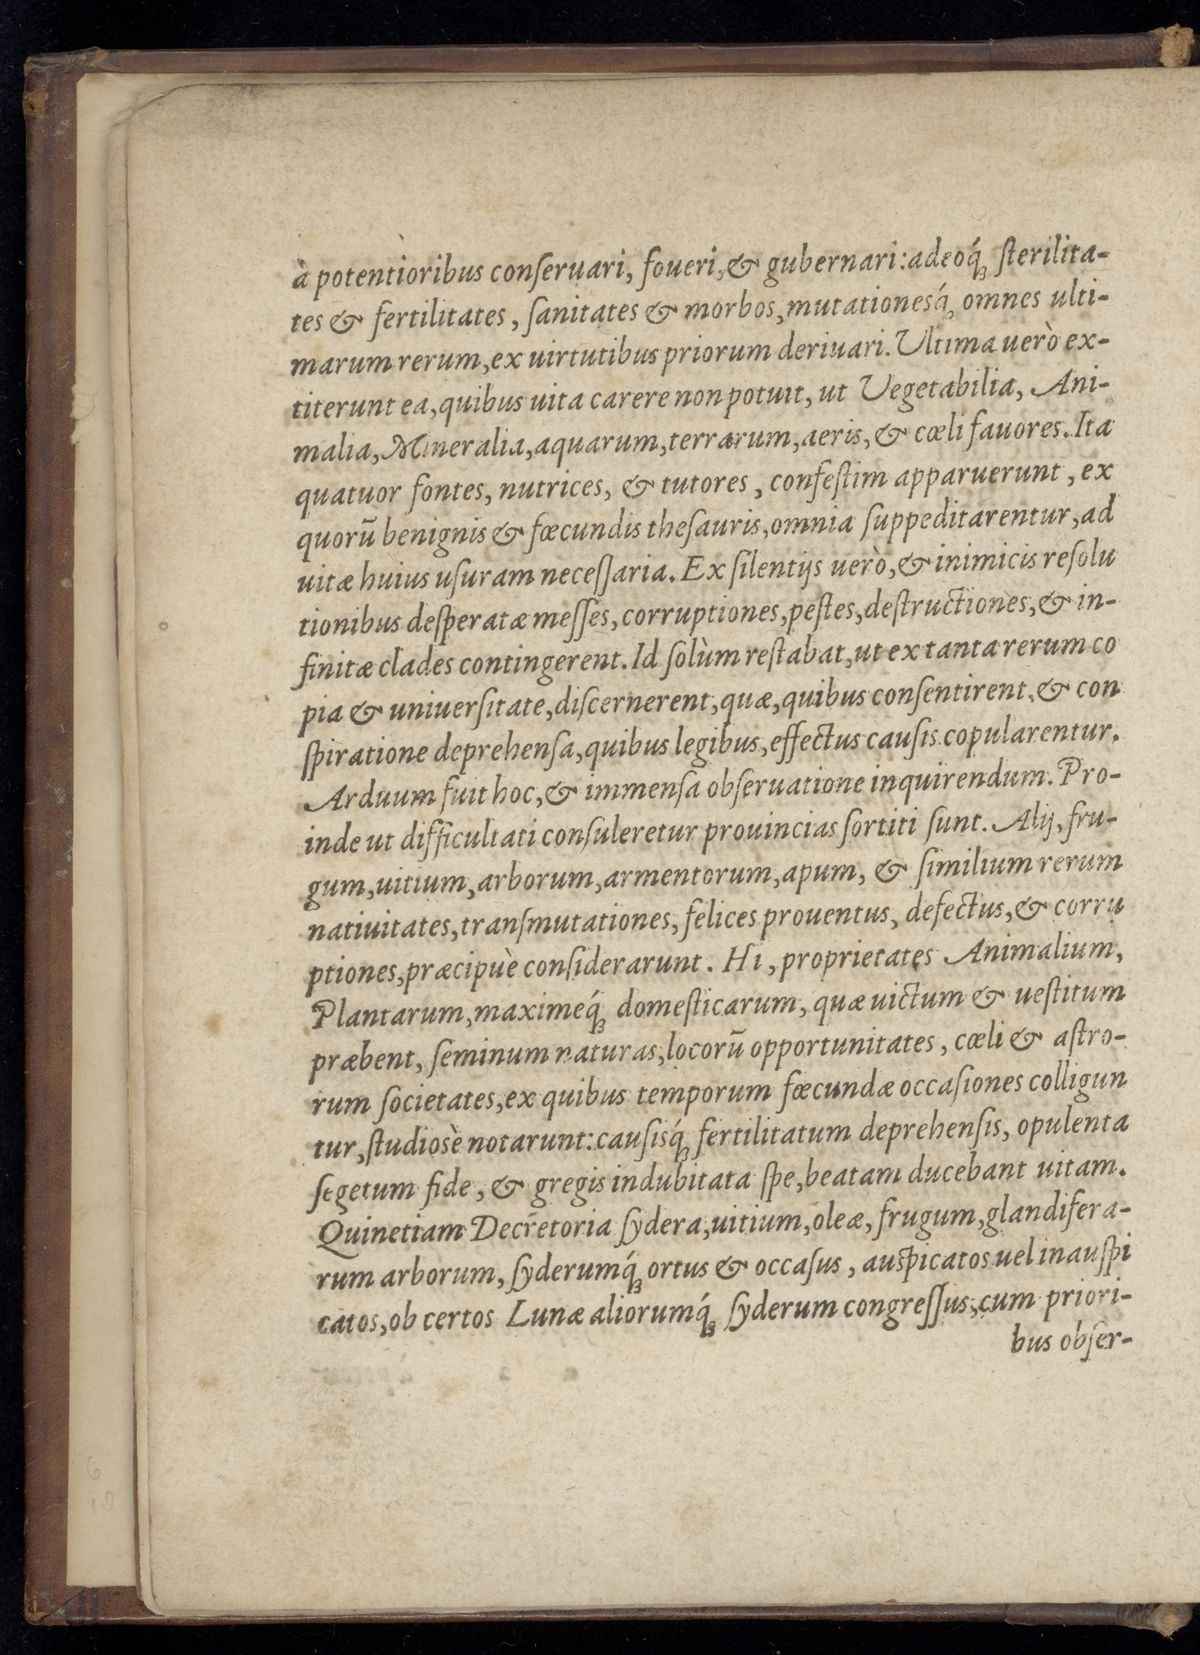 à potentioribus conſeruari, foueri, & gubernari: adeoq́ꝫ ſterilita-
tes & fertilitates, ſanitates & morbos, mutationesq́ꝫ omnes ulti-
marum rerum, ex uirtutibus priorum deriuari. Ultima uerò ex-
titerunt ea, quibus uita carere non potuit, ut Vegetabilia, Ani-
malia, Mineralia, aquarum, terrarum, aeris, & cœli fauores. Ita
quatuor fontes, nutrices, & tutores, confeſtim apparuerunt, ex
quorū benignis & fœcundis theſauris, omnia ſuppeditarentur, ad
uitæ huius uſuram neceſſaria. Ex ſilentijs uerò, & inimicis reſolu
tionibus deſperatæ meſſes, corruptiones, peſtes, deſtructiones, & in-
finitæ clades contingerent. Id ſolùm reſtabat, ut ex tanta rerum co
pia & uniuerſitate, diſcernerent, quæ, quibus conſentirent, & con
ſpiratione deprehenſa, quibus legibus, effectus cauſis copularentur.
Arduum fuit hoc, & immenſa obſeruatione inquirendum. Pro-
inde ut difficultati conſuleretur prouincias ſortiti ſunt. Alij, fru-
gum, uitium, arborum, armentorum, apum, & ſimilium rerum
natiuitates, tranſmutationes, felices prouentus, defectus, & corru
ptiones, præcipuè conſiderarunt. Hi, proprietates Animalium,
Plantarum, maximeq́ꝫ domeſticarum, quæ uictum & ueſtitum
præbent, ſeminum naturas, locorū opportunitates, cœli & aſtro-
rum ſocietates, ex quibus temporum fœcundæ occaſiones colligun
tur, ſtudiosè notarunt: cauſisq́ꝫ fertilitatum deprehenſis, opulenta
ſegetum fide, & gregis indubitata ſpe, beatam ducebant uitam.
Quinetiam Decretoria ſydera, uitium, oleæ, frugum, glandifera-
rum arborum, ſyderumq́ꝫ ortus & occaſus, auſpicatos uel inauſpi
catos, ob certos Lunæ aliorumq́ꝫ ſyderum congreſſus, cum priori-
bus obſer-